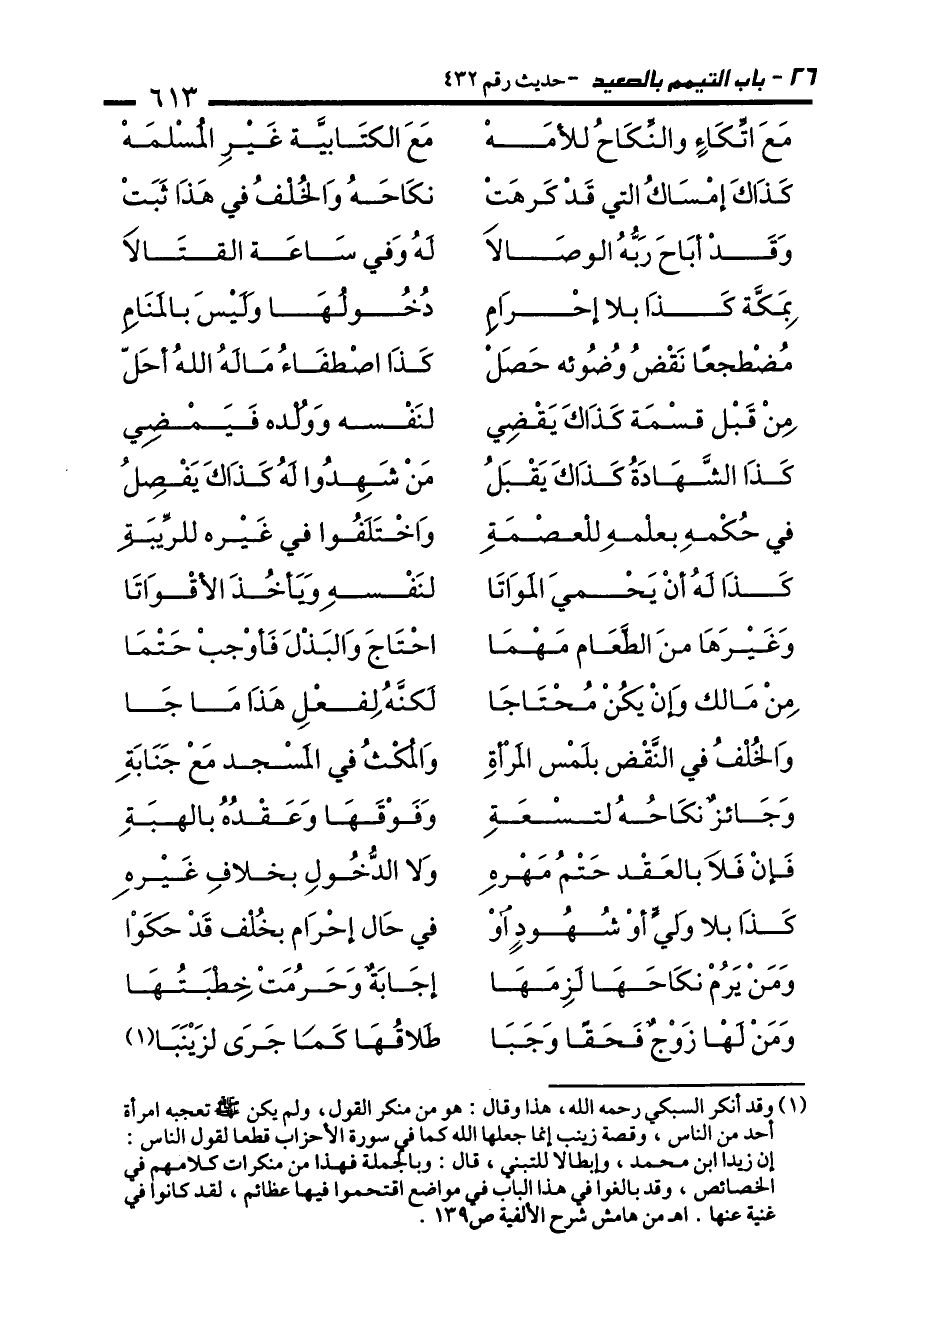 ٢٦ - باب التيمم بالصعيد - حديث رقم ٤٣٢
٦١٣
مَعَ اتِّكَاءٍ والنِّكَاحُ للأمَهْ مَعَ الكتَابيَّة غَيْرِ المُسْلمَهْ
كَذَاكَ إمْسَاكُ التي قَدْ كَرهَتْ نكَاحَهُ وَالخُلْفُ في هَذَا ثَبَتْ
وَقَدْ أبَاحَ رَبُّهُ الوصَالاَ لَهُ وَفي سَاعَة القتَالاَ
بمَكَّة كَذَا بلا إحْرَامِ دُخُولُهَا وَلَيْسَ بالمَنَامِ
مُضْطجعًا نَقْضُ وُضُوئه حَصَلْ كَذَا اصْطفَاءُ مَالَهُ اللهُ أحَلّ
منْ قَبْل قسْمَة كَذَاكَ يَقْضِي لنَفْسه وَوَلْده فَيَمْضِي
كَذَا الشَّهَادَةُ كَذَاكَ يَقْبَلُ مَنْ شَهدُوا لَهُ كَذَاكَ يَفْصِلُ
في حُكْمه بعلْمه للْعصْمَةِ وَاخْتَلَفُوا في غَيْره للرِّيبَةِ
كَذَا لَهُ أنْ يَحْميَ المَوَاتَا لنَفْسه وَيَأخُذَ الأقْوَاتَا
وَغَيْرَهَا منَ الطَّعَام مَهْمَا احْتَاجَ وَالبَذْلَ فَأوْجبْ حَتْمَا
منْ مَالك وَإنْ يَكُنْ مُحْتَاجَا لَكنَّهُ لفعْل هَذَا مَا جَا
وَالخُلْفُ في النَّقْض بلَمْس المَرْأةِ وَالمُكْثُ في المَسْجد مَعْ جَنَابَةِ
وَجَائزٌ نكَاحُهُ لتسْعَةِ وَفَوْقَهَا وَعَقْدُهُ بالهبَةِ
فَإنْ فَلاَ بالعَقْد حَتْمُ مَهْرِهِ وَلا الدُّخُول بخلافِ غَيْرِهِ
كَذَا بلا وَليٍّ أوْ شُهُودٍ أوْ في حَال إحْرَام بخُلْف قَدْ حَكَوْا
وَمَنْ يَرُمْ نكَاحَهَا لَزمَهَا إجَابَةٌ وَحَرُمَتْ خطْبَتُهَا
وَمَنْ لَهَا زَوْجٌ فَحَقًا وَجَبَا طَلاقُهَا كَمَا جَرَى لزَيْنَبَا(١)
(١) وقد أنكر السبكي رحمه الله، هذا وقال : هو من منكر القول، ولم يكن ﷺ تعجبه امرأة
أحد من الناس ، وقصة زينب إنما جعلها الله كما في سورة الأحزاب قطعا لقول الناس :
إن زيدا ابن محمد ، وإبطالا للتبني ، قال : وبالجملة فهذا من منكرات كلامهم في
الخصائص ، وقد بالغوا في هذا الباب في مواضع اقتحموا فيها عظائم ، لقد كانوا في
غنية عنها . اهـ من هامش شرح الألفية ص١٣٩ .